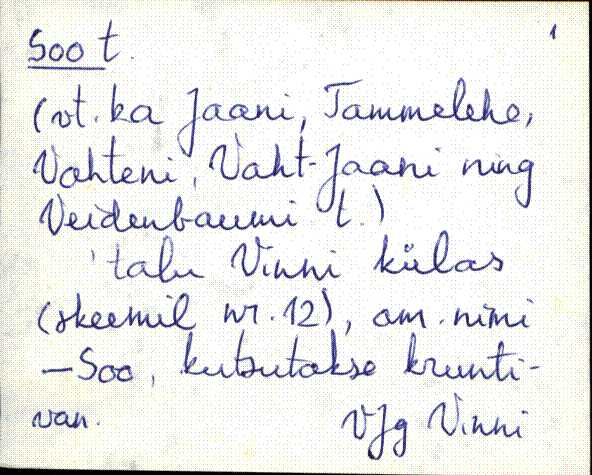 1
Soo t.
(vt. ka Jaani, Tammelehe,
Vahteni, Vaht-Jaani ning
Veidenbaumi t.)
'talu Vinni külas
(skeemil nr. 12), am. nimi
– Soo, kutsutakse krunti-
van. VJg Vinni